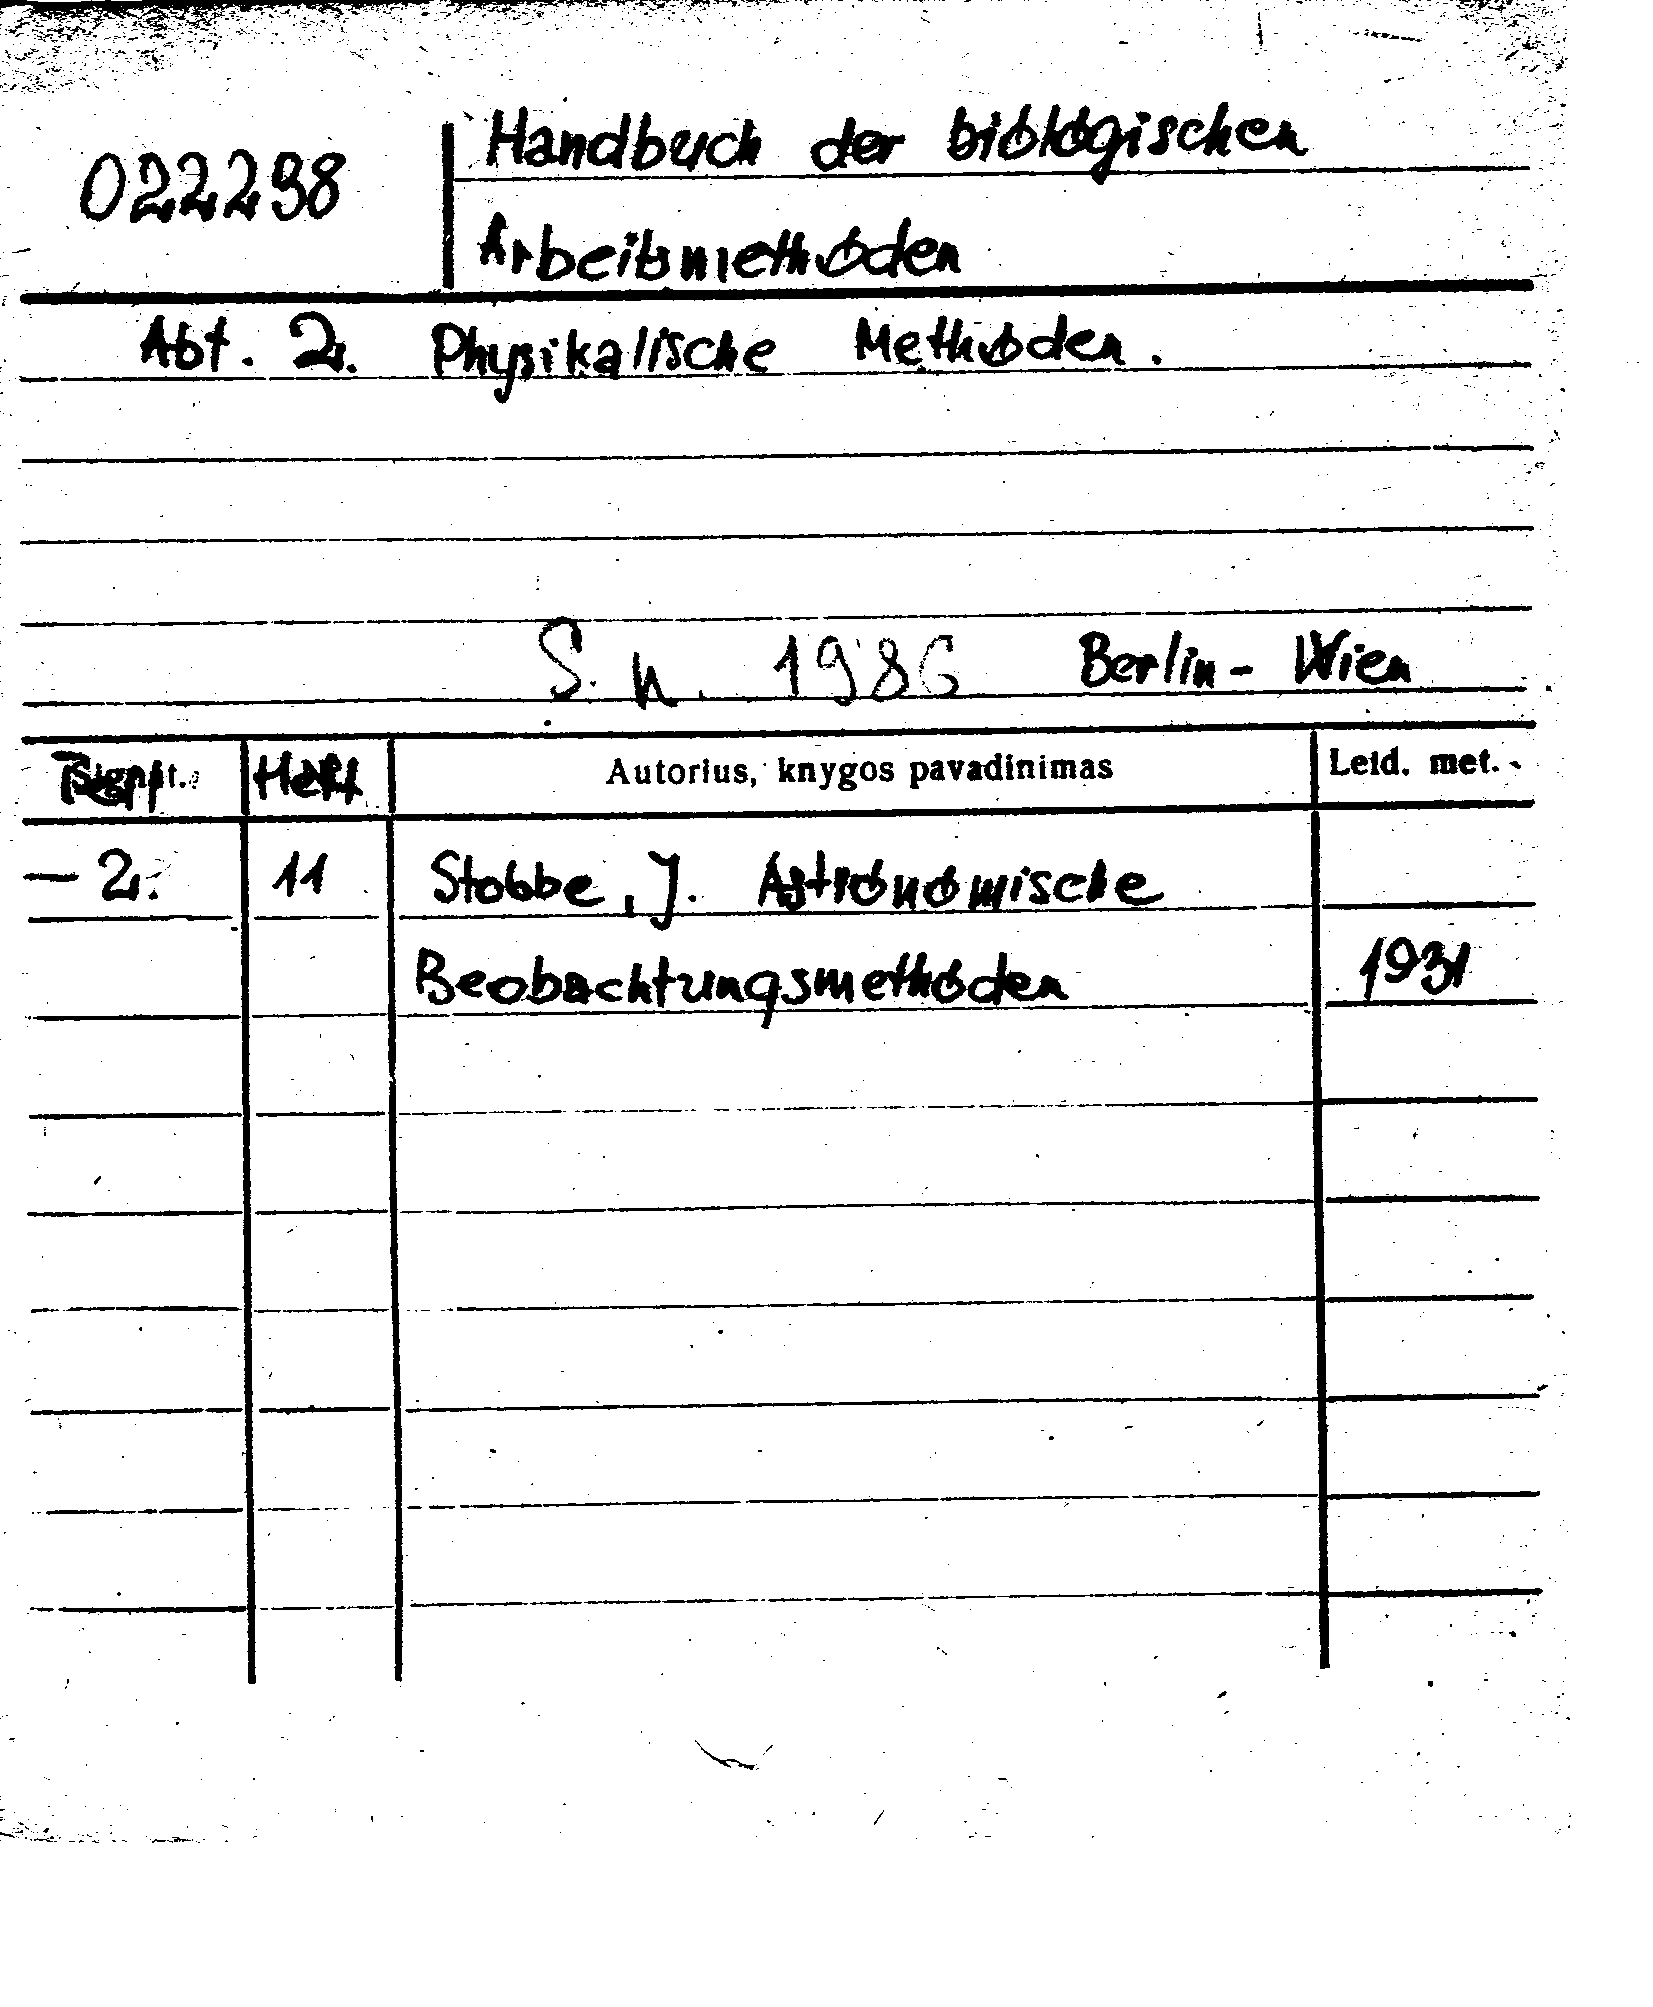 022298
Handbuch der biologischen
Arbeitsmethoden
Abt. 2. Physikalische Methoden.
S. n. 1986 Berlin - Wien
Heft Autorius, knygos pavadinimas Leid. met.
- 2. 11 Stobbe, J. Astronomische
Beobachtungsmethoden 1931